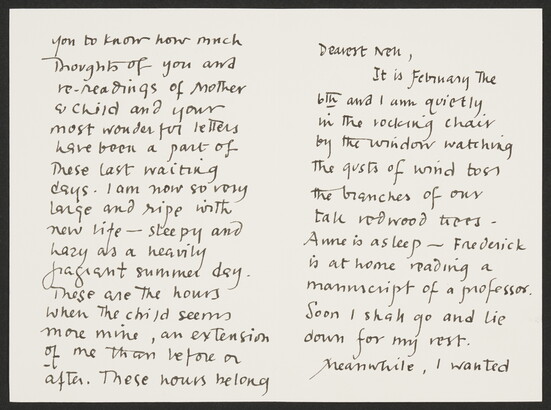 Dearest Nell,
It is February the
6th and I am quietly
in the rocking chair
by the window watching
the gusts of wind toss
the branches of our
tall redwood trees -
Anne is asleep — Frederick
is at home reading a
manuscript of a professor.
Soon I shall go and lie
down for my rest.
Meanwhile, I wanted
you to know how much
Thoughts of you and
re-readings of Mother
& Child and your
most wonderful letters
have been a part of
These last waiting
days. I am now so very
large and ripe with
new life — sleepy and
hazy as a heavily
fragrant summer day.
These are The hours
when The child seems
more mine, an extension
of me Than before or
after. These hours belong